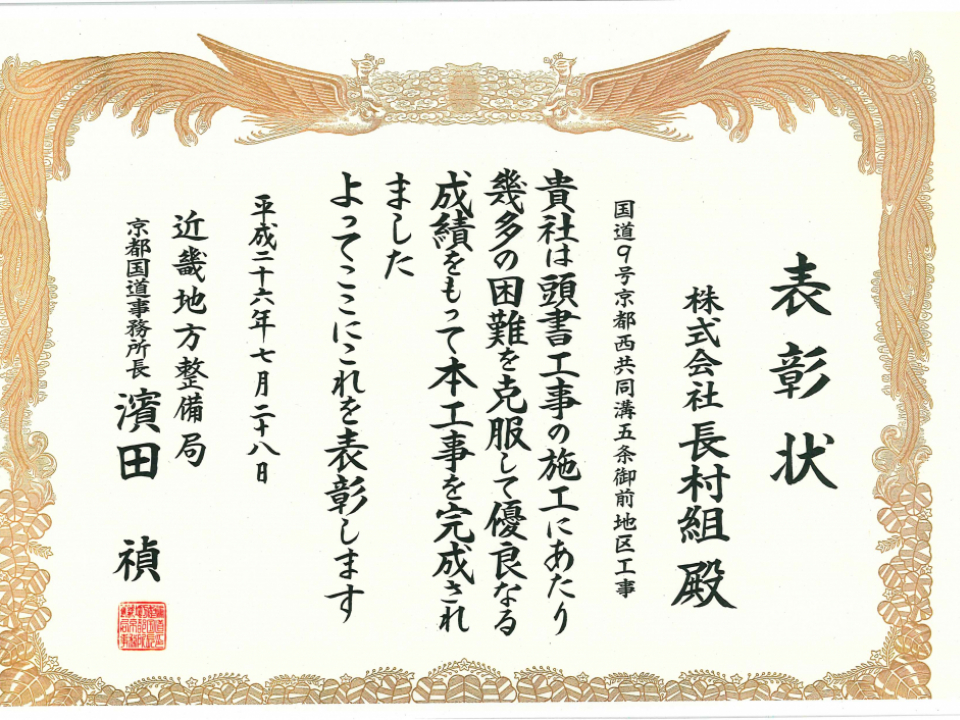 表彰状
株式会社長村組殿
国道9号京都西共同溝五条御前地区工事
貴社は頭書工事の施工にあたり
幾多の困難を克服して優良なる
成績をもって本工事を完成され
ました
よってここにこれを表彰します
平成二十六年七月二十八日
近畿地方整備局
京都国道事務所長 濱田 禎